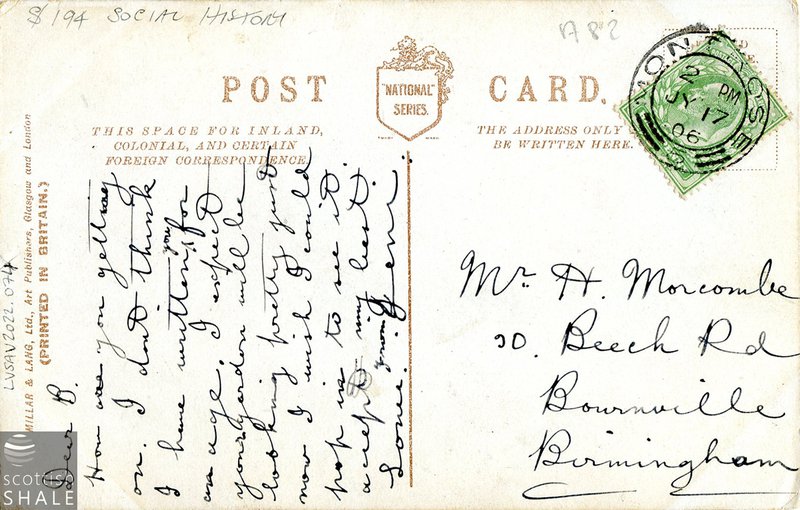 $ 194 SOCIAL HISTORY
A 82
POST CARD.
"NATIONAL"
SERIES.
THIS SPACE FOR INLAND,
COLONIAL, AND CERTAIN
FOREIGN CORRESPONDENCE.
THE ADDRESS ONLY
BE WRITTEN HERE.
MONTROSE
2 PM
JY 17
06
MILLAR & LANG, Ltd., Art Publishers, Glasgow and London
(PRINTED IN BRITAIN.)
LVSAV2022.074
Dear B.
How are you getting
on. I don't think
I have written you for
an age. I expect
your garden will be
looking pretty just
now I wish I could
pop in to see it.
accept my best
Love. from Jeni
Mr. H. Morcombe
30. Beech Rd
Bournville
Birmingham
scottish
SHALE